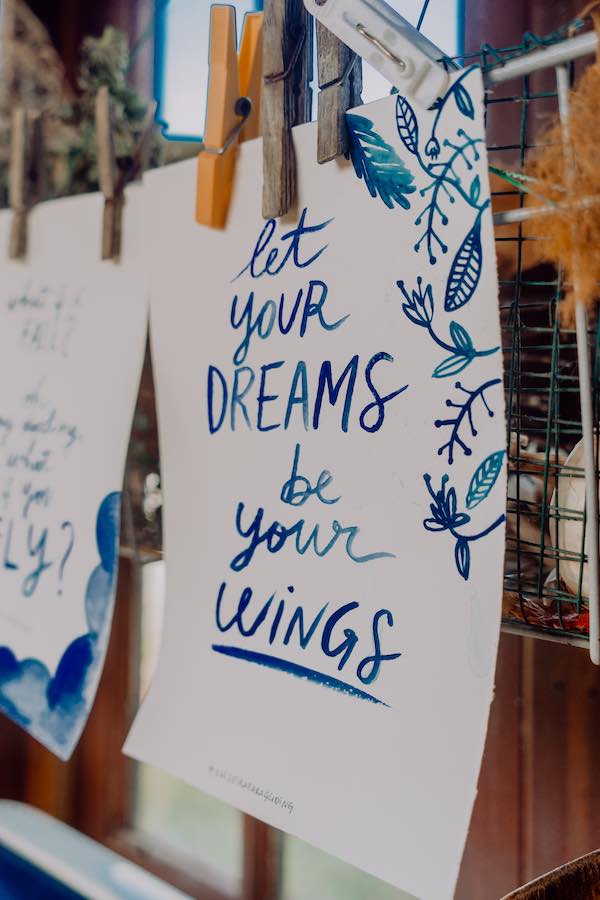 what if I
FALL?
oh,
my darling,
what
if you
FLY?
let
YOUR
DREAMS
be
your
WINGS